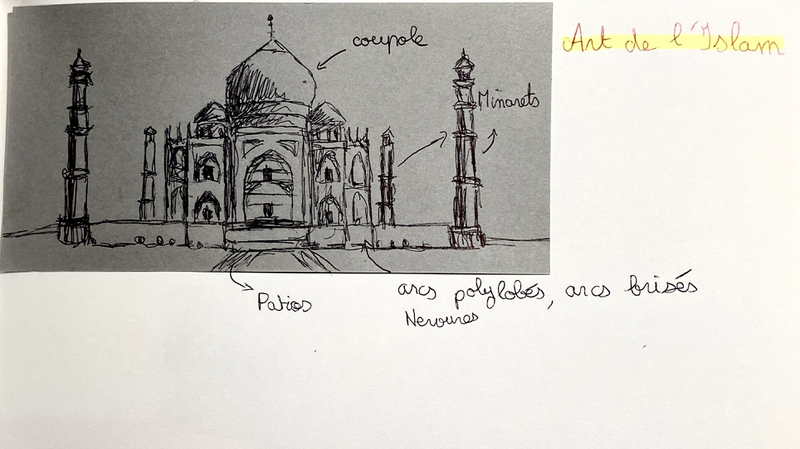 Art de l'Islam
coupole
Minarets
arcs polylobés, arcs brisés
Nervures
Patios